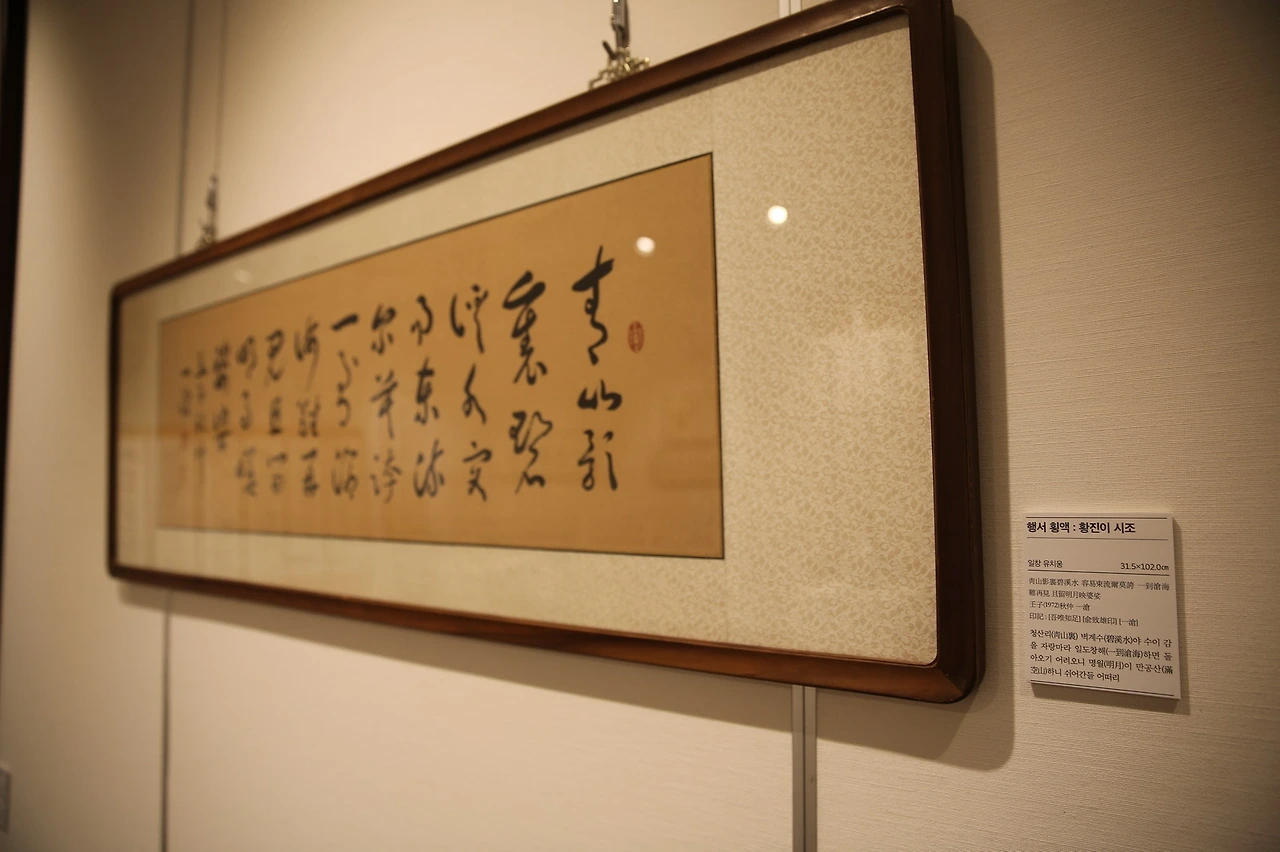 青山影
裏碧
溪水容
易東流
尔莫誇
一到滄
海難再
見且留
明月映
婆娑
壬子秋仲
一滄
행서 횡액 : 황진이 시조
일창 유치웅 31.5×102.0㎝
靑山影裏碧溪水 容易東流爾莫誇 一到滄海
難再見 且留明月映婆娑
壬子(1972)秋仲 一滄
印記 : [吾唯知足] [兪致雄印] [一滄]
청산리(靑山裏) 벽계수(碧溪水)야 수이 감
을 자랑마라 일도창해(一到滄海)하면 돌
아오기 어려오니 명월(明月)이 만공산(滿
空山)하니 쉬어간들 어떠리